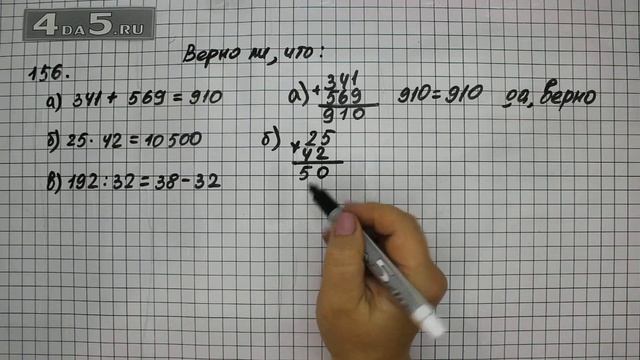 4DA5.RU
Верно ли, что:
156.
а) 341 + 569 = 910
б) 25 · 42 = 10500
в) 192 : 32 = 38 - 32
а) + 341
569
910
910 = 910 да, верно
б) × 25
42
50